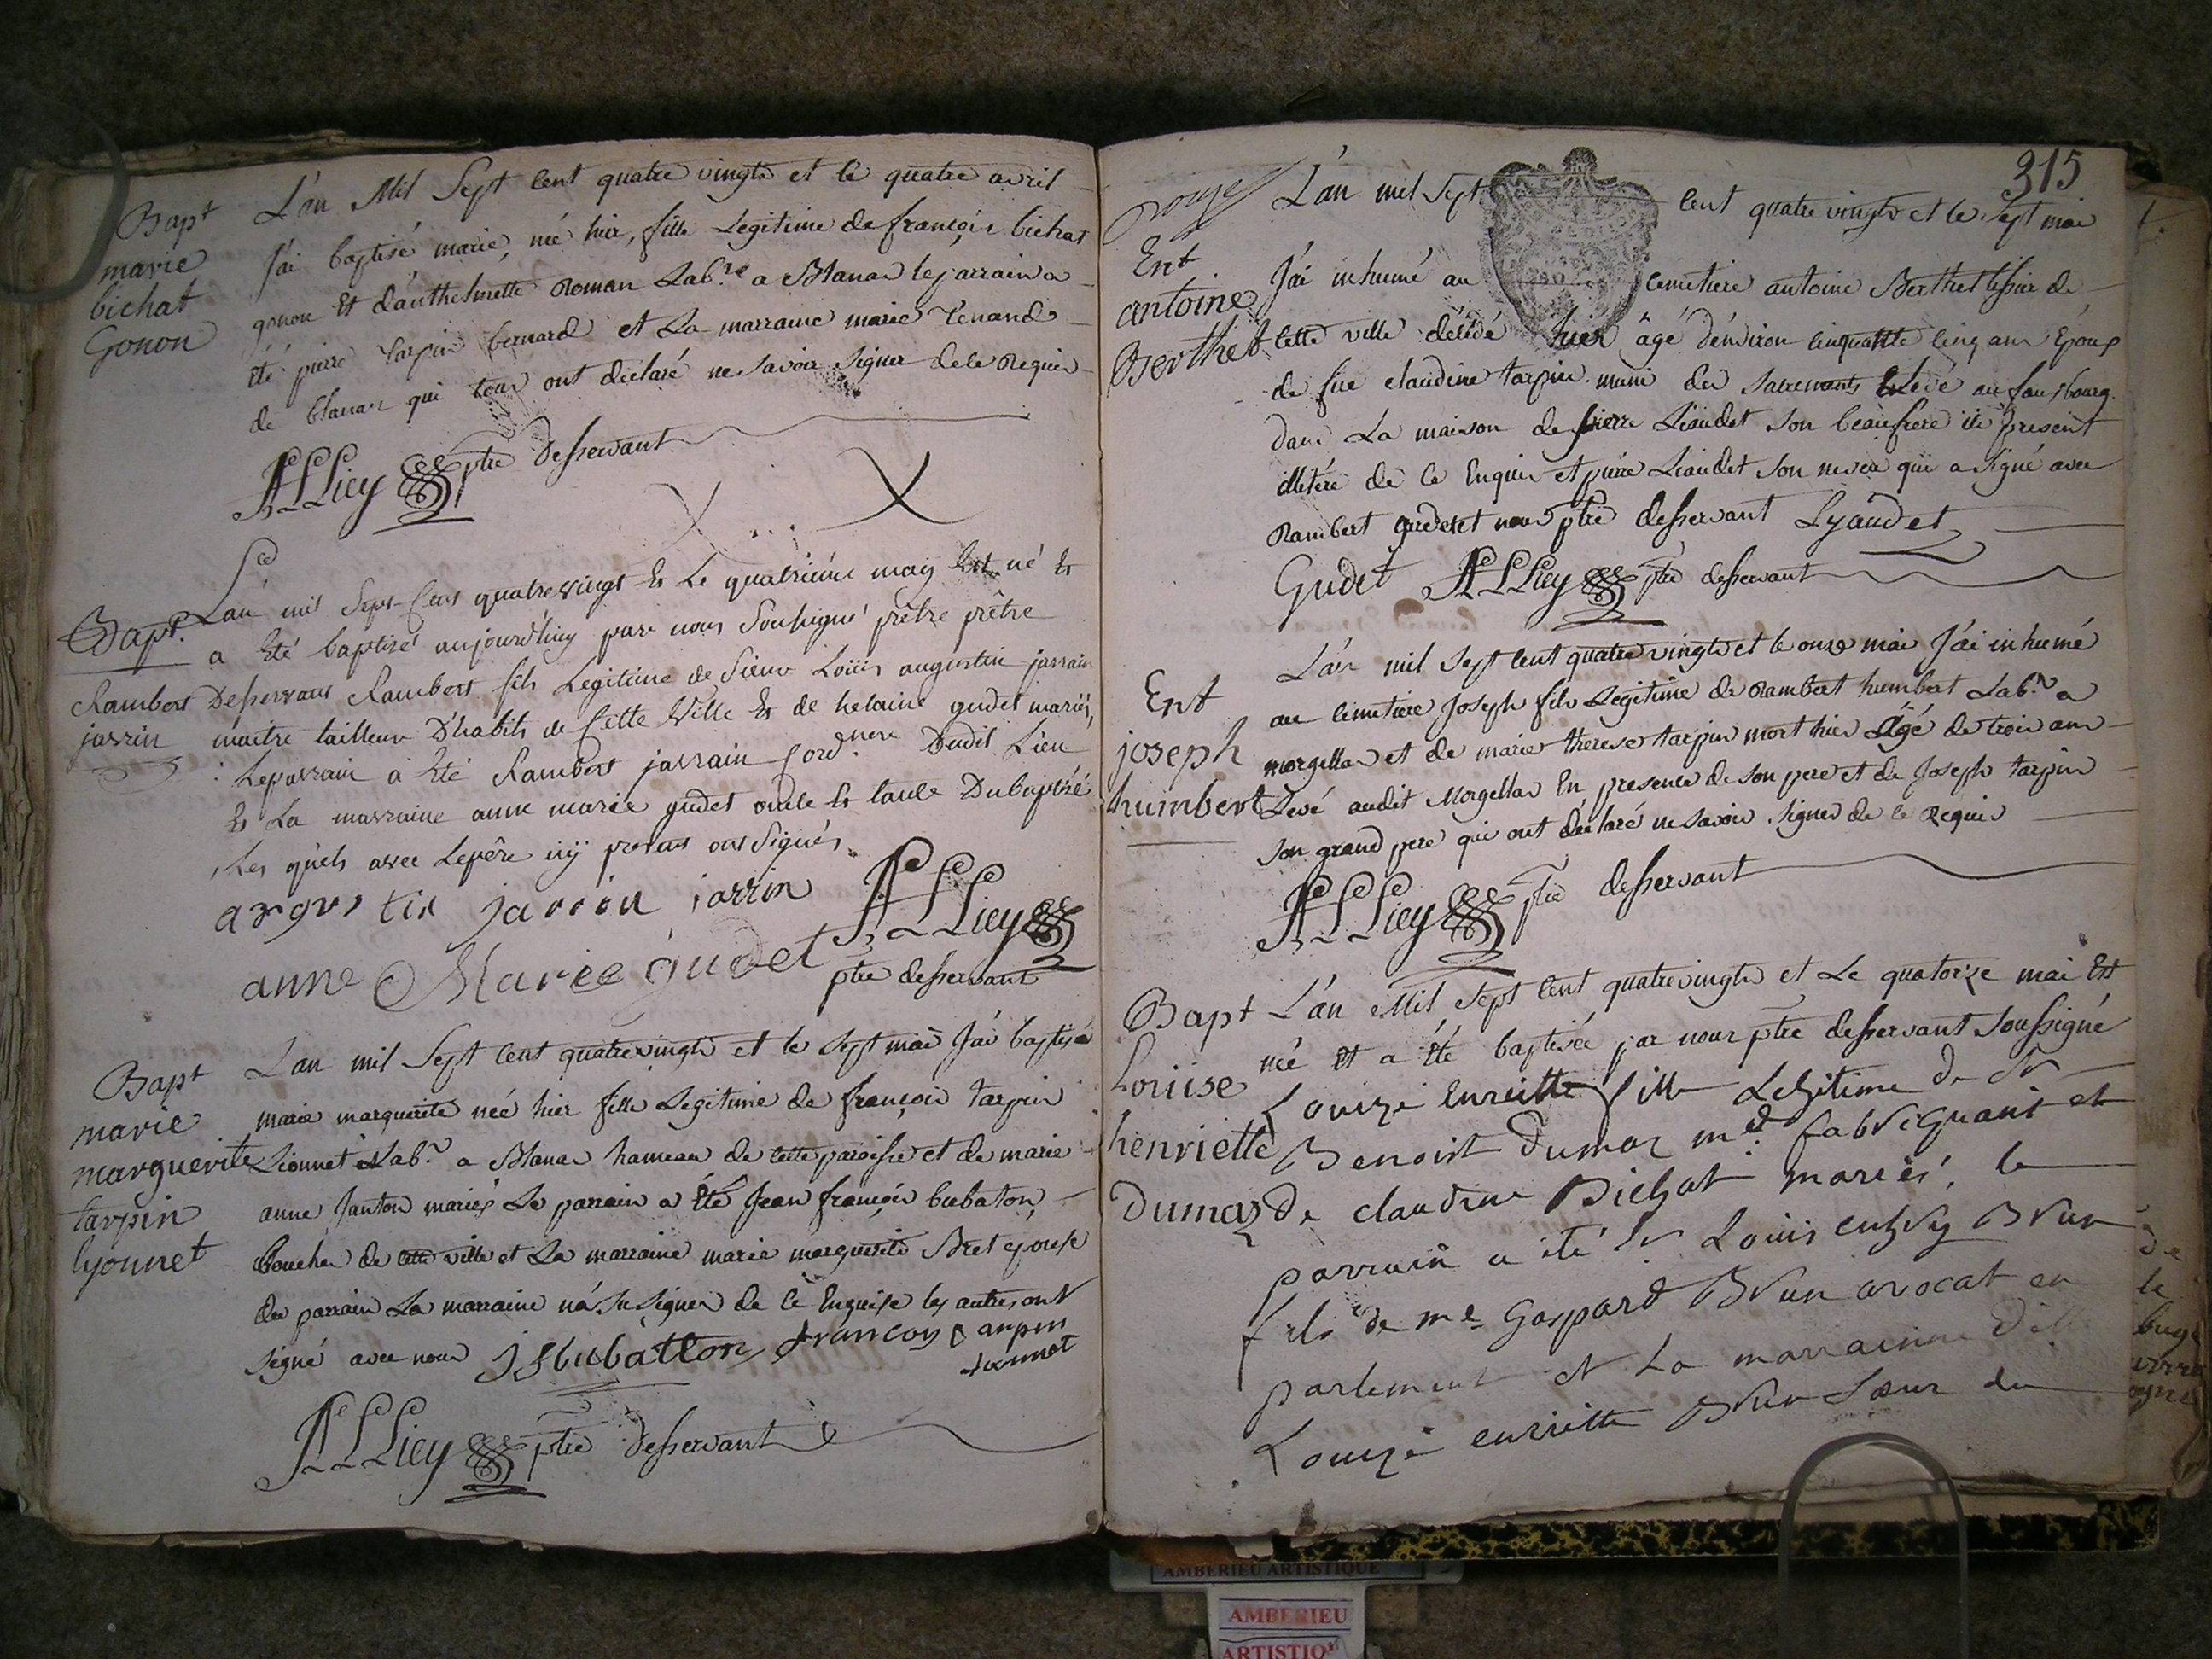 Bapt
marie
bichat
Gonon
L'an Mil Sept Cent quatre vingts et le quatre avril
J'ai baptisé marie, née hier, fille Legitime de françois bichat
gonon Et d'anthelmette Roman Lab.re a Blanas le parrain a
été pierre tarpin bernard et La marraine marie Tenand
de blanas qui tous ont déclaré ne savoir signer de ce Requis
ptre desservant
Bapt.
Rambert
jarrin
L'an mil Sept Cens quatrevings Et Le quatrième may Est né Et
a Eté baptizé aujourdhuy par nous Soussigné prêtre prêtre
Desservant Rambert fils Legitime de Sieur Loüis augustin jarrain
maitre tailleur D'habits de Cette Ville Et de helaine gudet mariés,
Leparrain à Eté Rambert jarrain Cord.nere Dudit Lieu
Et La marraine anne marie gudet oncle Et tante Dubaptisé
Les quels avec Lepère icy présens ont Signés.
jarrin
anne Marie gudet
ptre desservant
Bapt
marie
marguerite
tarpin
lyonnet
L'an mil Sept Cent quatrevingts et le Sept mai J'ai baptisé
marie marguerite née hier fille Legitime de françois tarpin
Lionnet Lab.r a Blanas hameau de cette paroisse et de marie
anne Janton mariés Le parrain a Eté Jean françois bubaton
boucher de cette ville et La marraine marie marguerite Bret epouse
du parrain La marraine n'a Su Signer de ce Enquise les autres ont
signé avec nous Jf bubatton françois tarpin
Lionnet
ptre desservant
315
Ent
antoine
Berthet
L'an mil Sept Cent quatre vingts et le Sept mai
J'ai inhumé au Cemetiere antoine Berthet de
Cette ville décédé hier âgé d'environ Cinquante Cinq ans Epoux
de fue claudine tarpin muni des Sacrements Levé au fausbourg
dans La maison de pierre Liaudet Son beaufrere ici present
illitéré de ce Enquis et pierre Liaudet Son neveu qui a signé avec
Rambert gudet et nous ptre desservant Lyaudet
Gudet ptre desservant
Ent
joseph
humbert
L'an mil Sept Cent quatre vingts et le onze mai J'ai inhumé
au Cimetiere Joseph fils Legitime de Rambert humbert Lab.r a
morgellas et de marie therese tarpin mort hier Agé de trois ans
Levé audit Morgellas En presence de son pere et de Joseph tarpin
Son grand pere qui ont déclaré ne Savoir Signer de ce Requis
ptre desservant
Bapt
Louise
henriette
Dumas
L'an Mil Sept Cent quatrevingts et Le quatorze mai Est
née Et a été baptisée par nous ptre desservant Soussigné
Louize Enriette fille Legitime de Sr
Benoist Dumas md. fabriquant et
De claudine Bichat mariés, le
parrain a été Sr Louis Brun
fils de me Gaspard Brun avocat en
parlement et La marrainne
Louize enriette Brun Sœur du
AMBERIEU ARTISTIQUE
AMBERIEU
ARTISTIQ